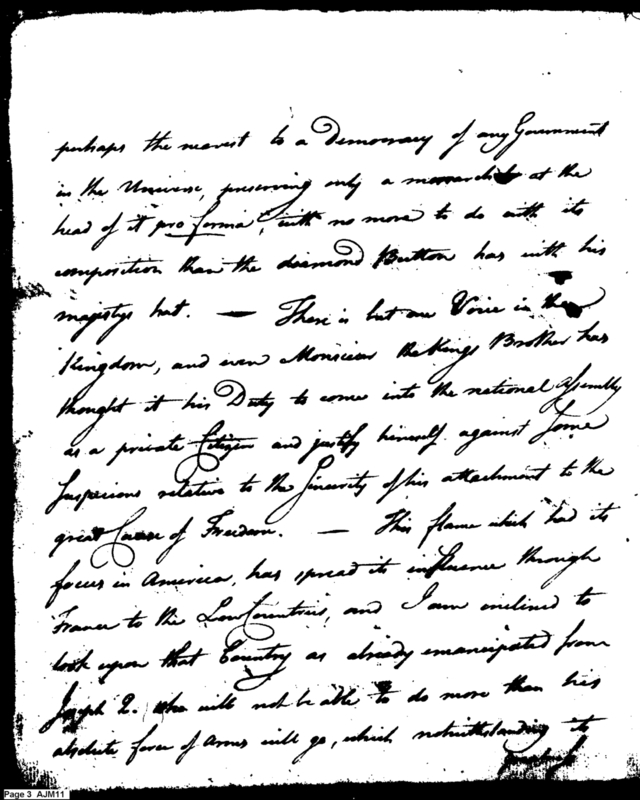 perhaps the nearest to a Democracy of any Government
in the Universe, preserving only a monarch at the
head of it pro forma, with no more to do with its
composition than the diamond Button has with his
majestys hat. — There is but one Voice in the
Kingdom, and even Monsieur the Kings Brother has
thought it his Duty to come into the national Assembly
as a private Citizen and justify himself against Some
Suspicions relative to the Sincerity of his attachment to the
great Cause of Freedom. — This flame which had its
focus in America, has spread its influence through
France to the Low Countries, and I am inclined to
look upon that Country as already emancipated from
Joseph 2. who will not be able to do more than his
absolute force of Arms will go, which notwithstanding its
greatness
Page 3 AJM11